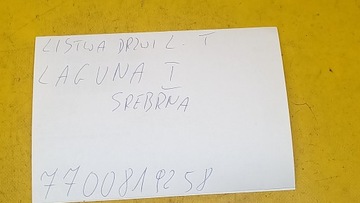 LISTWA DRZWI L. T
LAGUNA I
SREBRNA
7700819258